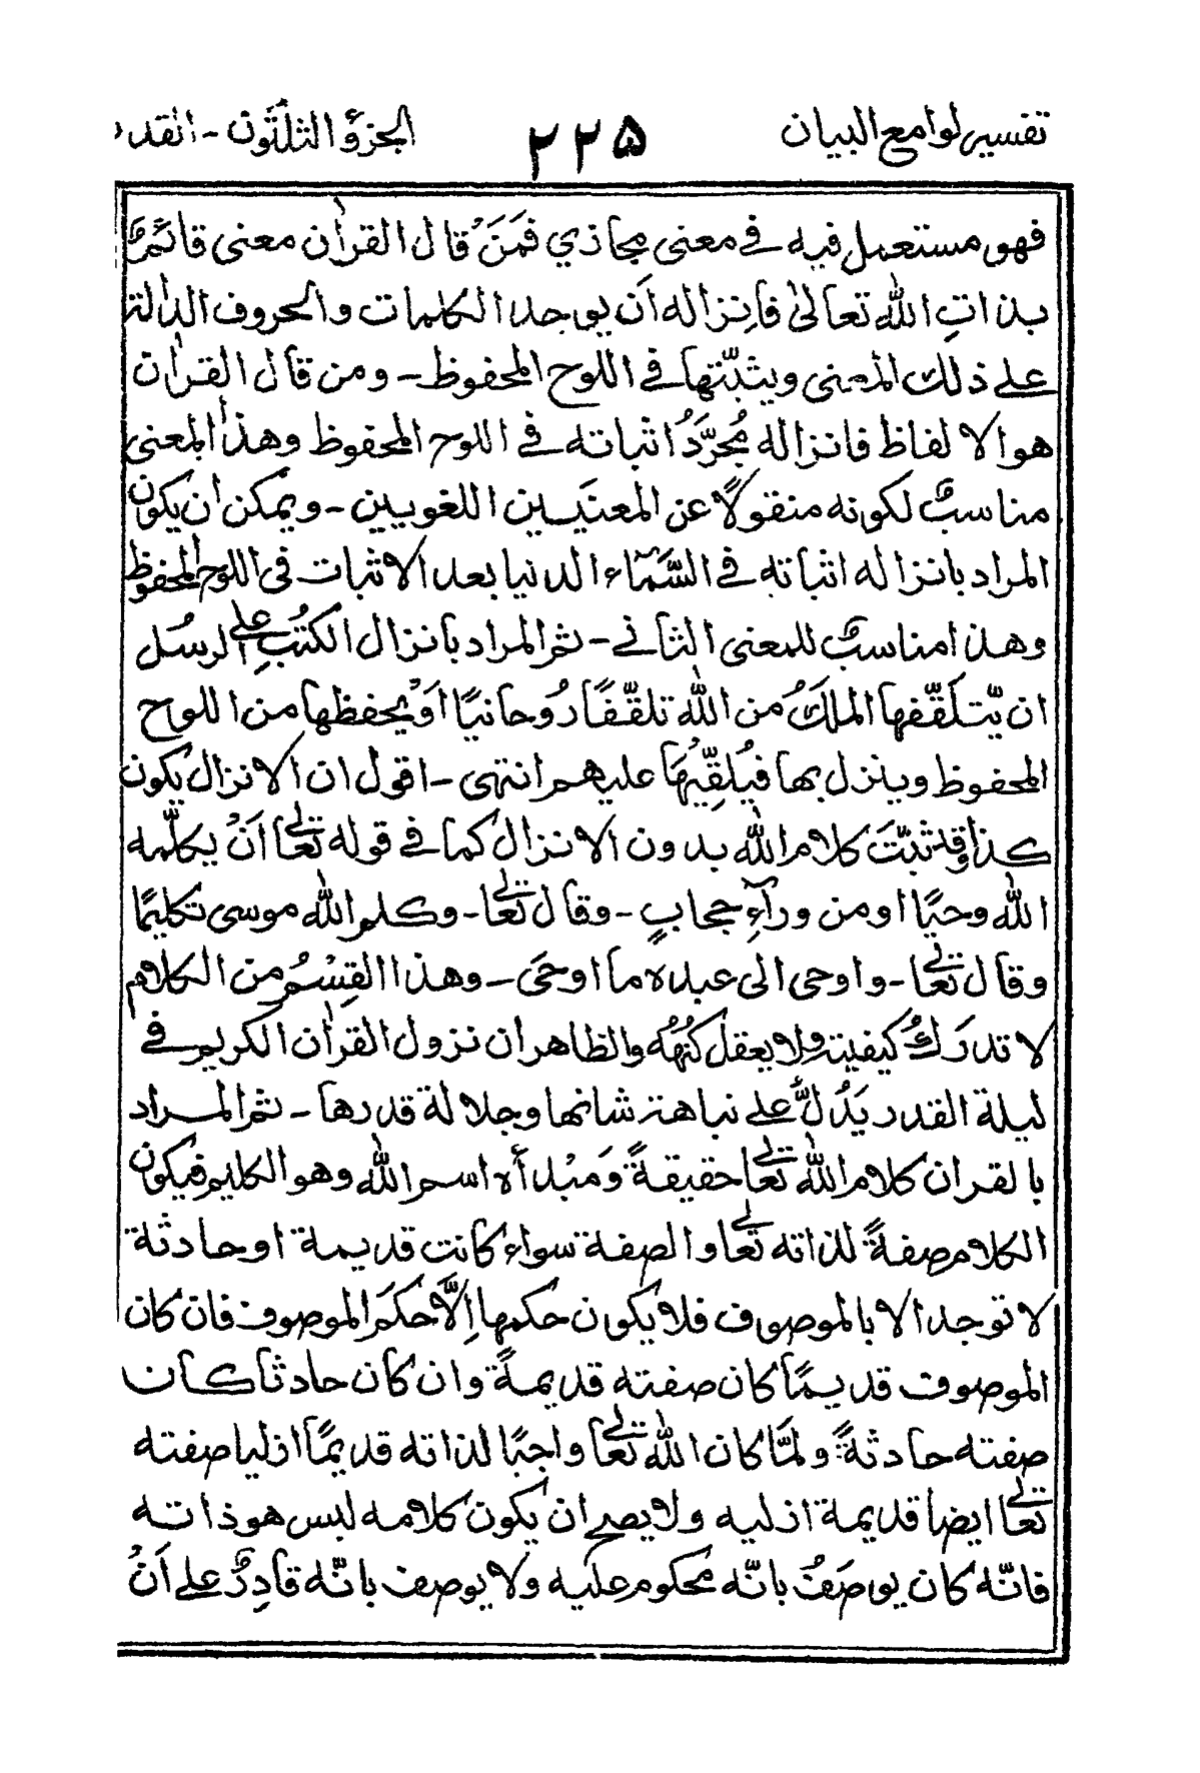 تفسير لوامع البيان ٢٢٥ الجزؤ الثلثون - القدر
فهو مستعمل فيه في معنى مجازي فَمَنْ قال القرأن معنى قائمٌ
بذاتِ الله تعالىٰ فاِنزاله اَن يوجد الكلمات والحروف الدالة
على ذلك المعنى ويثبّتها في اللوح المحفوظ - ومن قال القرأن
هو الالفاظ فانزاله مُجرَّدُ اثباته في اللوح المحفوظ وهذا المعنى
مناسبٌ لكونه منقولًا عن المعنَيَين اللغويين - ويمكن ان يكون
المراد بانزاله اثباته في السَّمَاء الدنيا بعد الاثبات فى اللوح المحفوظ
وهذا مناسبٌ للمعنى الثاني - ثم المراد بانزال الكتُبِ على الرسُل
ان يّتلَقّفها الملَكُ من الله تلقّفًا رُوحانيًا اَوْ يحفظها من اللوح
المحفوظ وينزل بها فيُلقِّيْهَا عليهم انتهى - اقول ان الانزال يكون
كذا وقد ثبّتَ كلام الله بدون الانزال كما في قوله تعالى اَنْ يكلّمه
الله وحيًا او من ورآءِ حجابٍ - وقال تعالى - وكلم الله موسى تكليمًا
وقال تعالى - واوحى الى عبده ما اوحَى - وهذا القِسْمُ من الكلام
لا تدرَكُ كيفيته ولا يعقل كُنْهُه والظاهر ان نزول القرأن الكريم في
ليلة القدر يَدُلُّ على نباهة شانها وجلالة قدرها - ثم المراد
بالقران كلام الله تعالى حقيقةً وَمَبْدأه اسم الله وهو الكليم فيكون
الكلام صفةً لذاته تعالى والصفة سواء كانت قديمة او حادثة
لا توجد الا بالموصوف فلا يكون حكمها اِلَّا حكمَ الموصوف فان كان
الموصوف قديمًا كان صفته قديمةً وان كان حادثا كان
صفته حادثةً ولمّا كان الله تعالى واجبًا لذاته قديمًا ازليا صفته
تعالى ايضا قديمة ازليه ولا يصح ان يكون كلامه ليس هو ذاته
فانّه كان يوصَفُ بانّه محكوم عليه ولا يوصف بانّه قادِرٌ على اَنْ